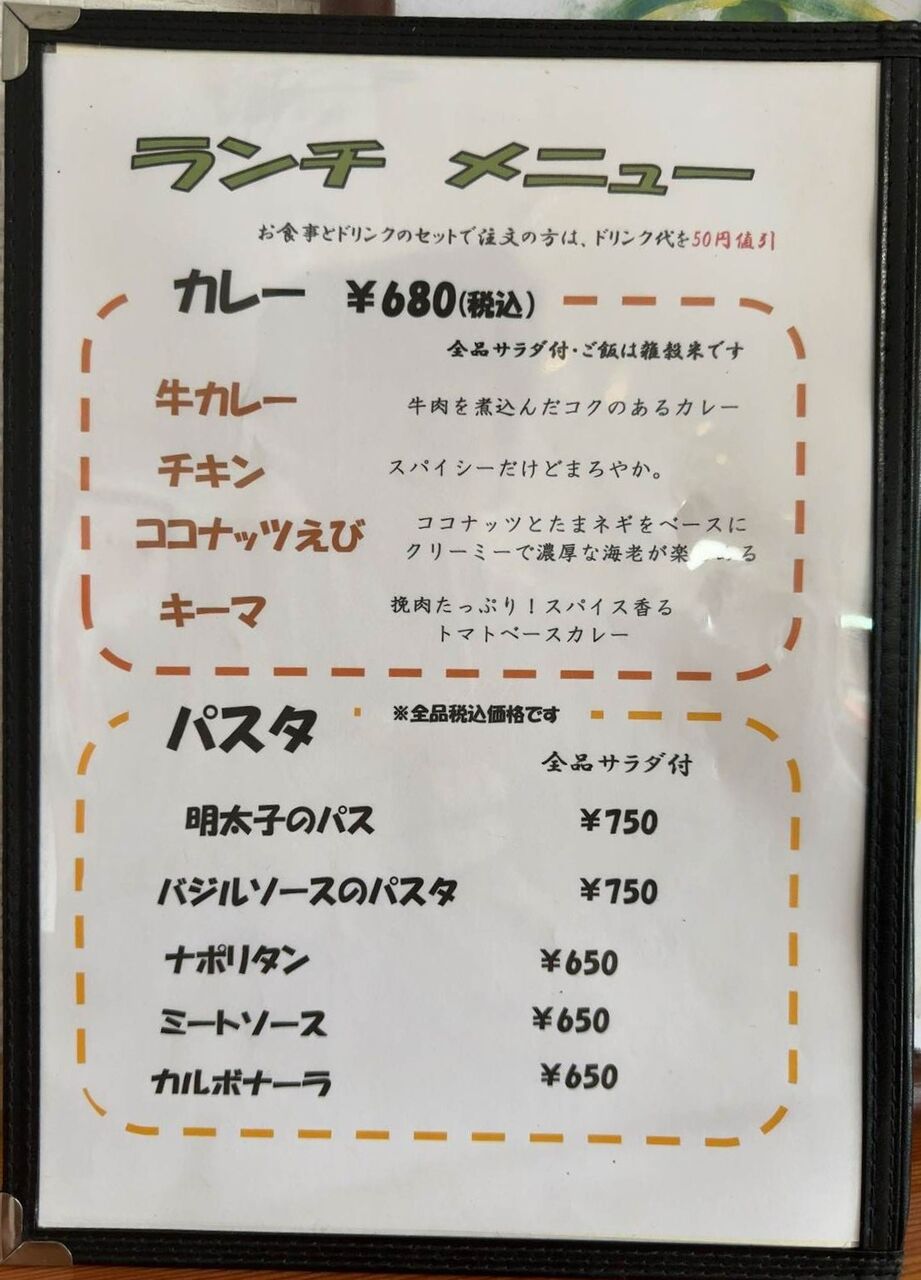 ランチ メニュー
お食事とドリンクのセットで注文の方は、ドリンク代を50円値引
カレー ¥680(税込)
全品サラダ付・ご飯は雑穀米です
牛カレー 牛肉を煮込んだコクのあるカレー
チキン スパイシーだけどまろやか。
ココナッツえび ココナッツとたまネギをベースに
クリーミーで濃厚な海老が楽 る
キーマ 挽肉たっぷり！スパイス香る
トマトベースカレー
パスタ ※全品税込価格です
全品サラダ付
明太子のパス ¥750
バジルソースのパスタ ¥750
ナポリタン ¥650
ミートソース ¥650
カルボナーラ ¥650